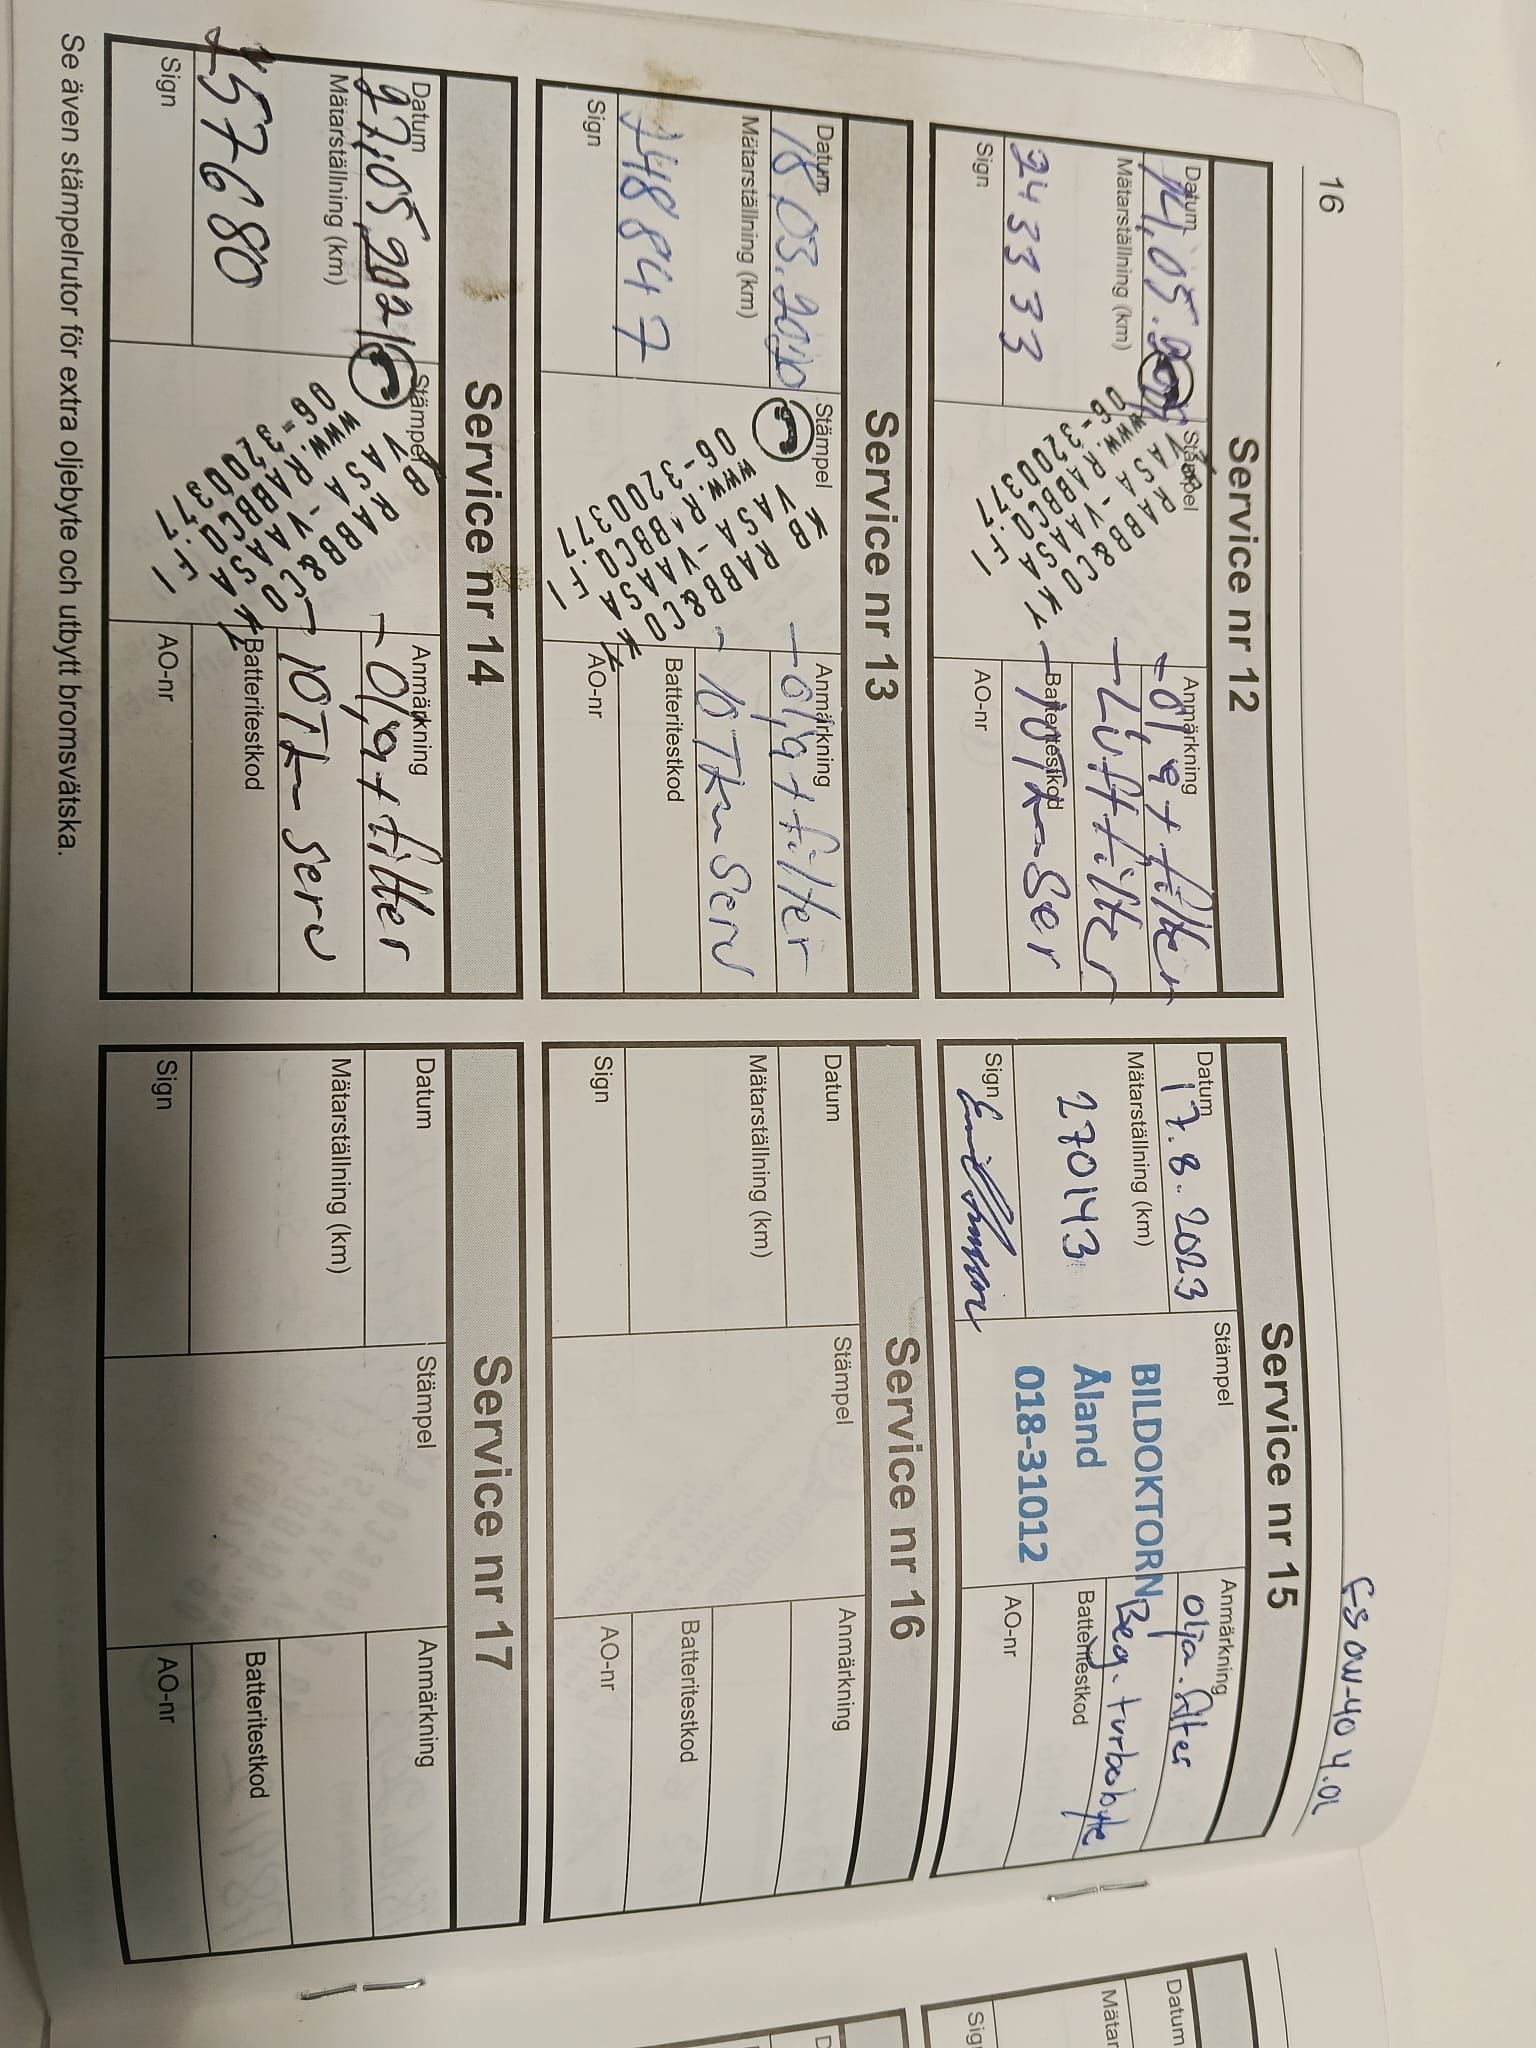 16
ES 0W-40 4.0L
Service nr 12
Datum
Stämpel
Anmärkning
- olja + filter
Mätarställning (km)
- Luftfilter
243333
Batteritestkod
- 10 Tkm ser
Sign
AO-nr
RABB & CO KY
VASA - VAASA
WWW.RABBCO.FI
06-3200377
Service nr 13
Datum
18.03.2020
Stämpel
Anmärkning
- olja + filter
Mätarställning (km)
- 10 Tkm serv
148847
Batteritestkod
Sign
AO-nr
KB RABB & CO KY
VASA - VAASA
WWW.RABBCO.FI
06-3200377
Service nr 14
Datum
27.05.2021
Stämpel
Anmärkning
- Olja + filter
Mätarställning (km)
- 10 Tkm serv
157680
Batteritestkod
Sign
AO-nr
KB RABB & CO KY
VASA - VAASA
WWW.RABBCO.FI
06-3200377
Service nr 15
Datum
17.8.2023
Stämpel
Anmärkning
olja. filter
Mätarställning (km)
270143
BILDOKTORN
Åland
018-31012
Beg. turbo byte
Batteritestkod
Sign
AO-nr
Service nr 16
Datum
Stämpel
Anmärkning
Mätarställning (km)
Batteritestkod
Sign
AO-nr
Service nr 17
Datum
Stämpel
Anmärkning
Mätarställning (km)
Batteritestkod
Sign
AO-nr
Se även stämpelrutor för extra oljebyte och utbytt bromsvätska.
Datum
Mätar
Sign
D